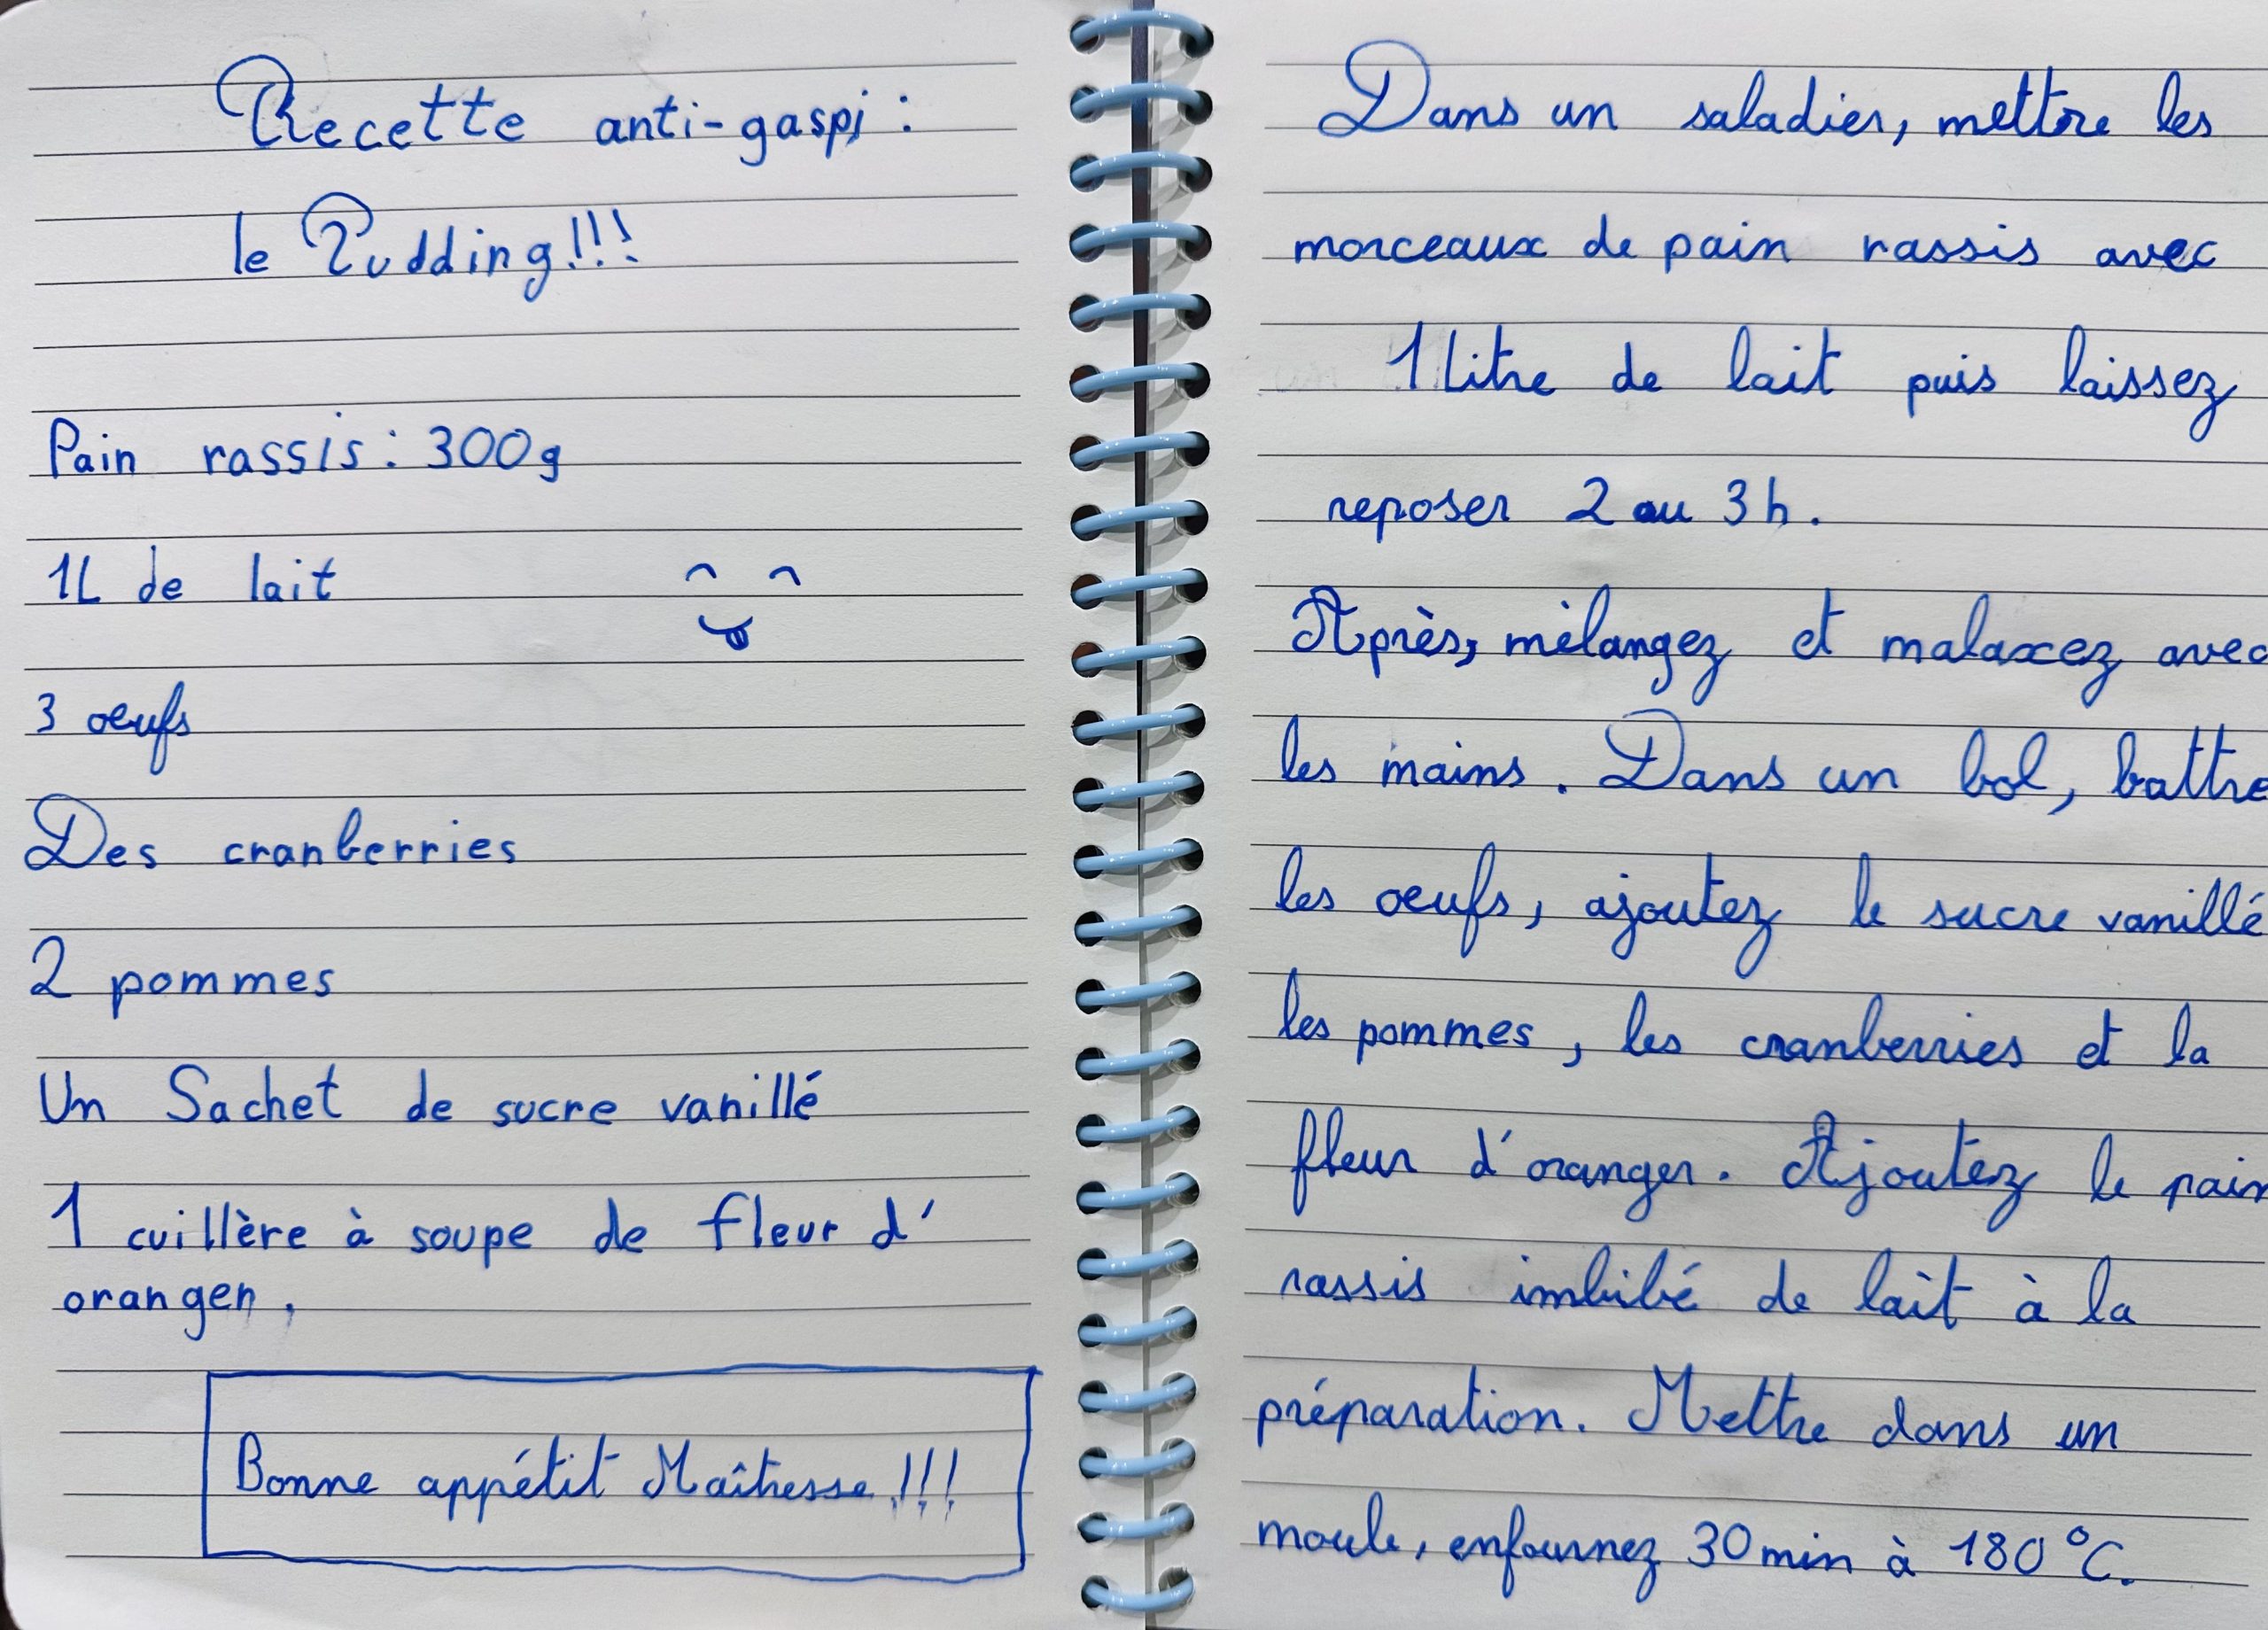 Recette anti-gaspi :
le Pudding!!!
Pain rassis : 300g
1L de lait
3 oeufs
Des cranberries
2 pommes
Un Sachet de sucre vanillé
1 cuillère à soupe de fleur d'
oranger.
Bonne appétit Maîtresse !!!
Dans un saladier, mettre les
morceaux de pain rassis avec
1 Litre de lait puis laissez
reposer 2 ou 3h.
Après, mélangez et malaxez avec
les mains. Dans un bol, battre
les oeufs, ajoutez le sucre vanillé
les pommes, les cranberries et la
fleur d'oranger. Ajoutez le pain
rassis imbibé de lait à la
préparation. Mettre dans un
moule, enfournez 30 min à 180°C.